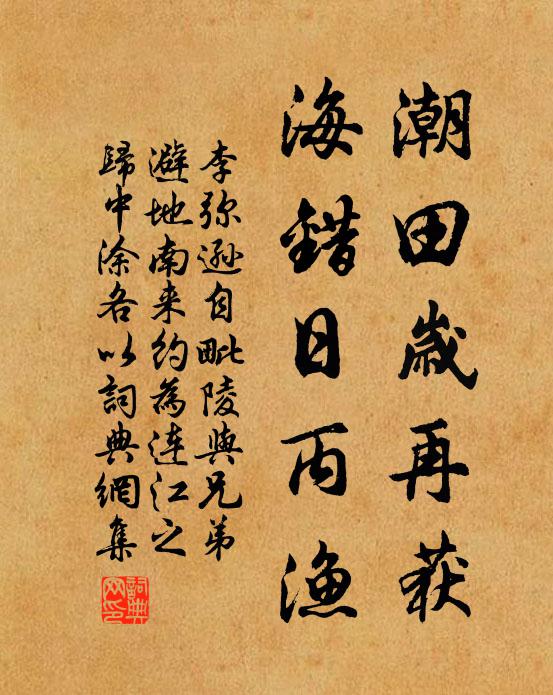 潮田歲再获
海錯日丙漁
李弥遜自毗陵與兄弟
避地南来約為連江之
歸中涂各以詞典網集
詞典網印